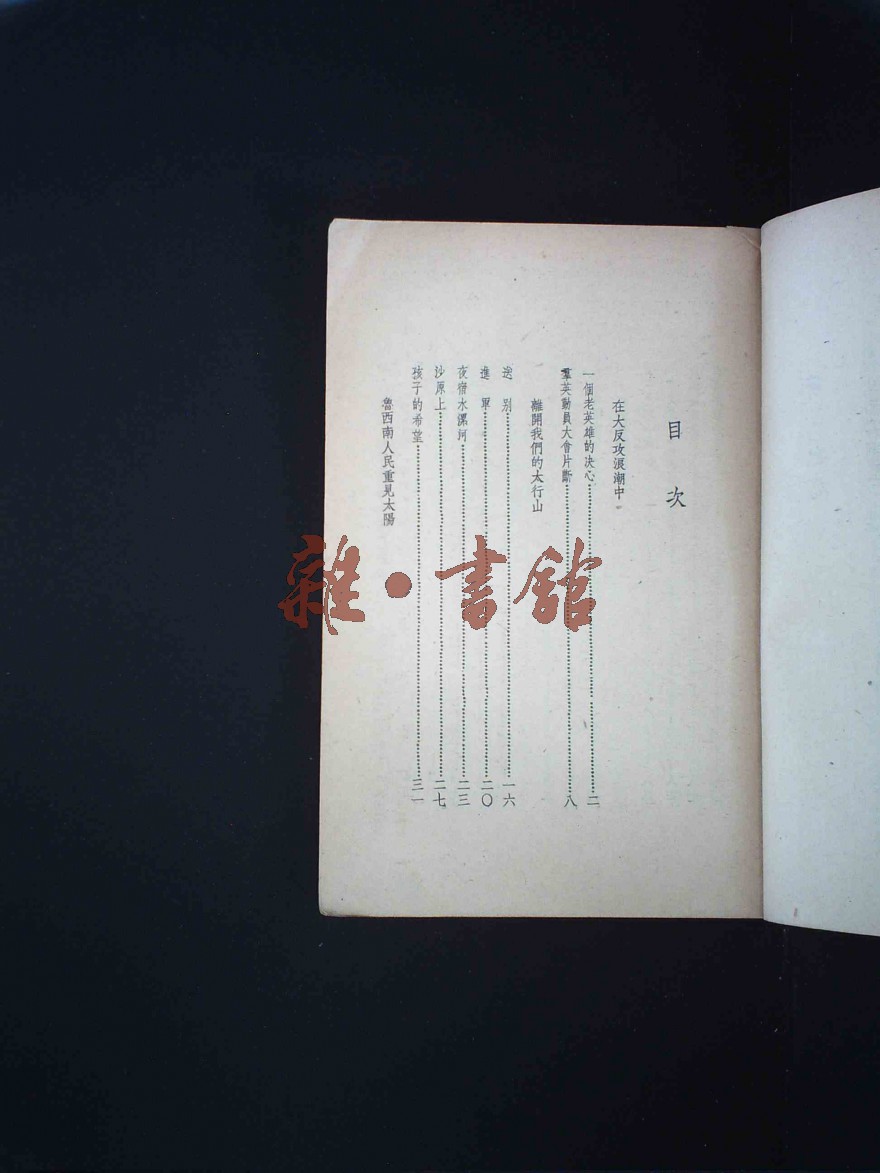 目次
在大反攻浪潮中
一個老英雄的决心……二
羣英動員大會片斷……八
離開我們的太行山
送别……一六
進軍……二〇
夜宿水漯河……二三
沙原上……二七
孩子的希望……三一
魯西南人民重見太陽
雜·書館